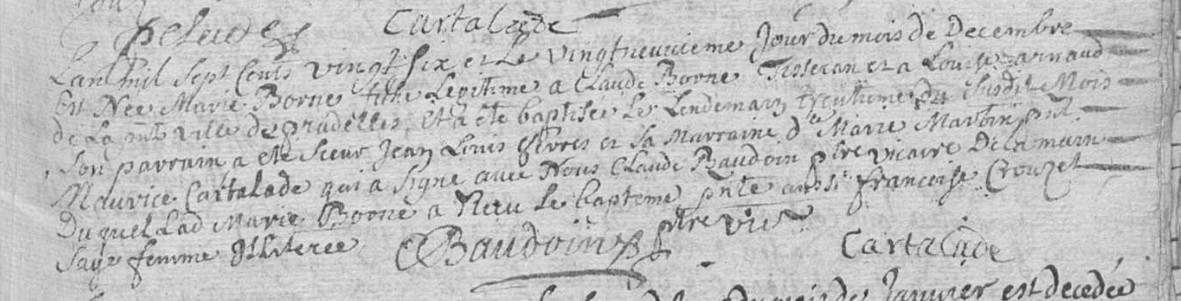 Cartalade
Lan mil Sept Cents vingt Six et Le vingtneuvieme Jour du mois de Decembre
Est Née Marie Borne fille Legitime a Claude Borne Tisseran et a Louise arnaud
de La ville de pradelles, Et a ete baptisée Le Lendemain trentieme du susdit Mois
Son parrain a ete Sieur Jean Louis et Sa Marraine dlle Marie Martin pnt
Maurice Cartalade qui a Signe avec Nous Claude Baudoin ptre vicaire De la main
Duquel Lad Marie Borne a Reçu Le bapteme pnte aussi francoise Crouzet
Sage femme Illiteree
Baudoin ptre vic
Cartalade
Janvier est decedée